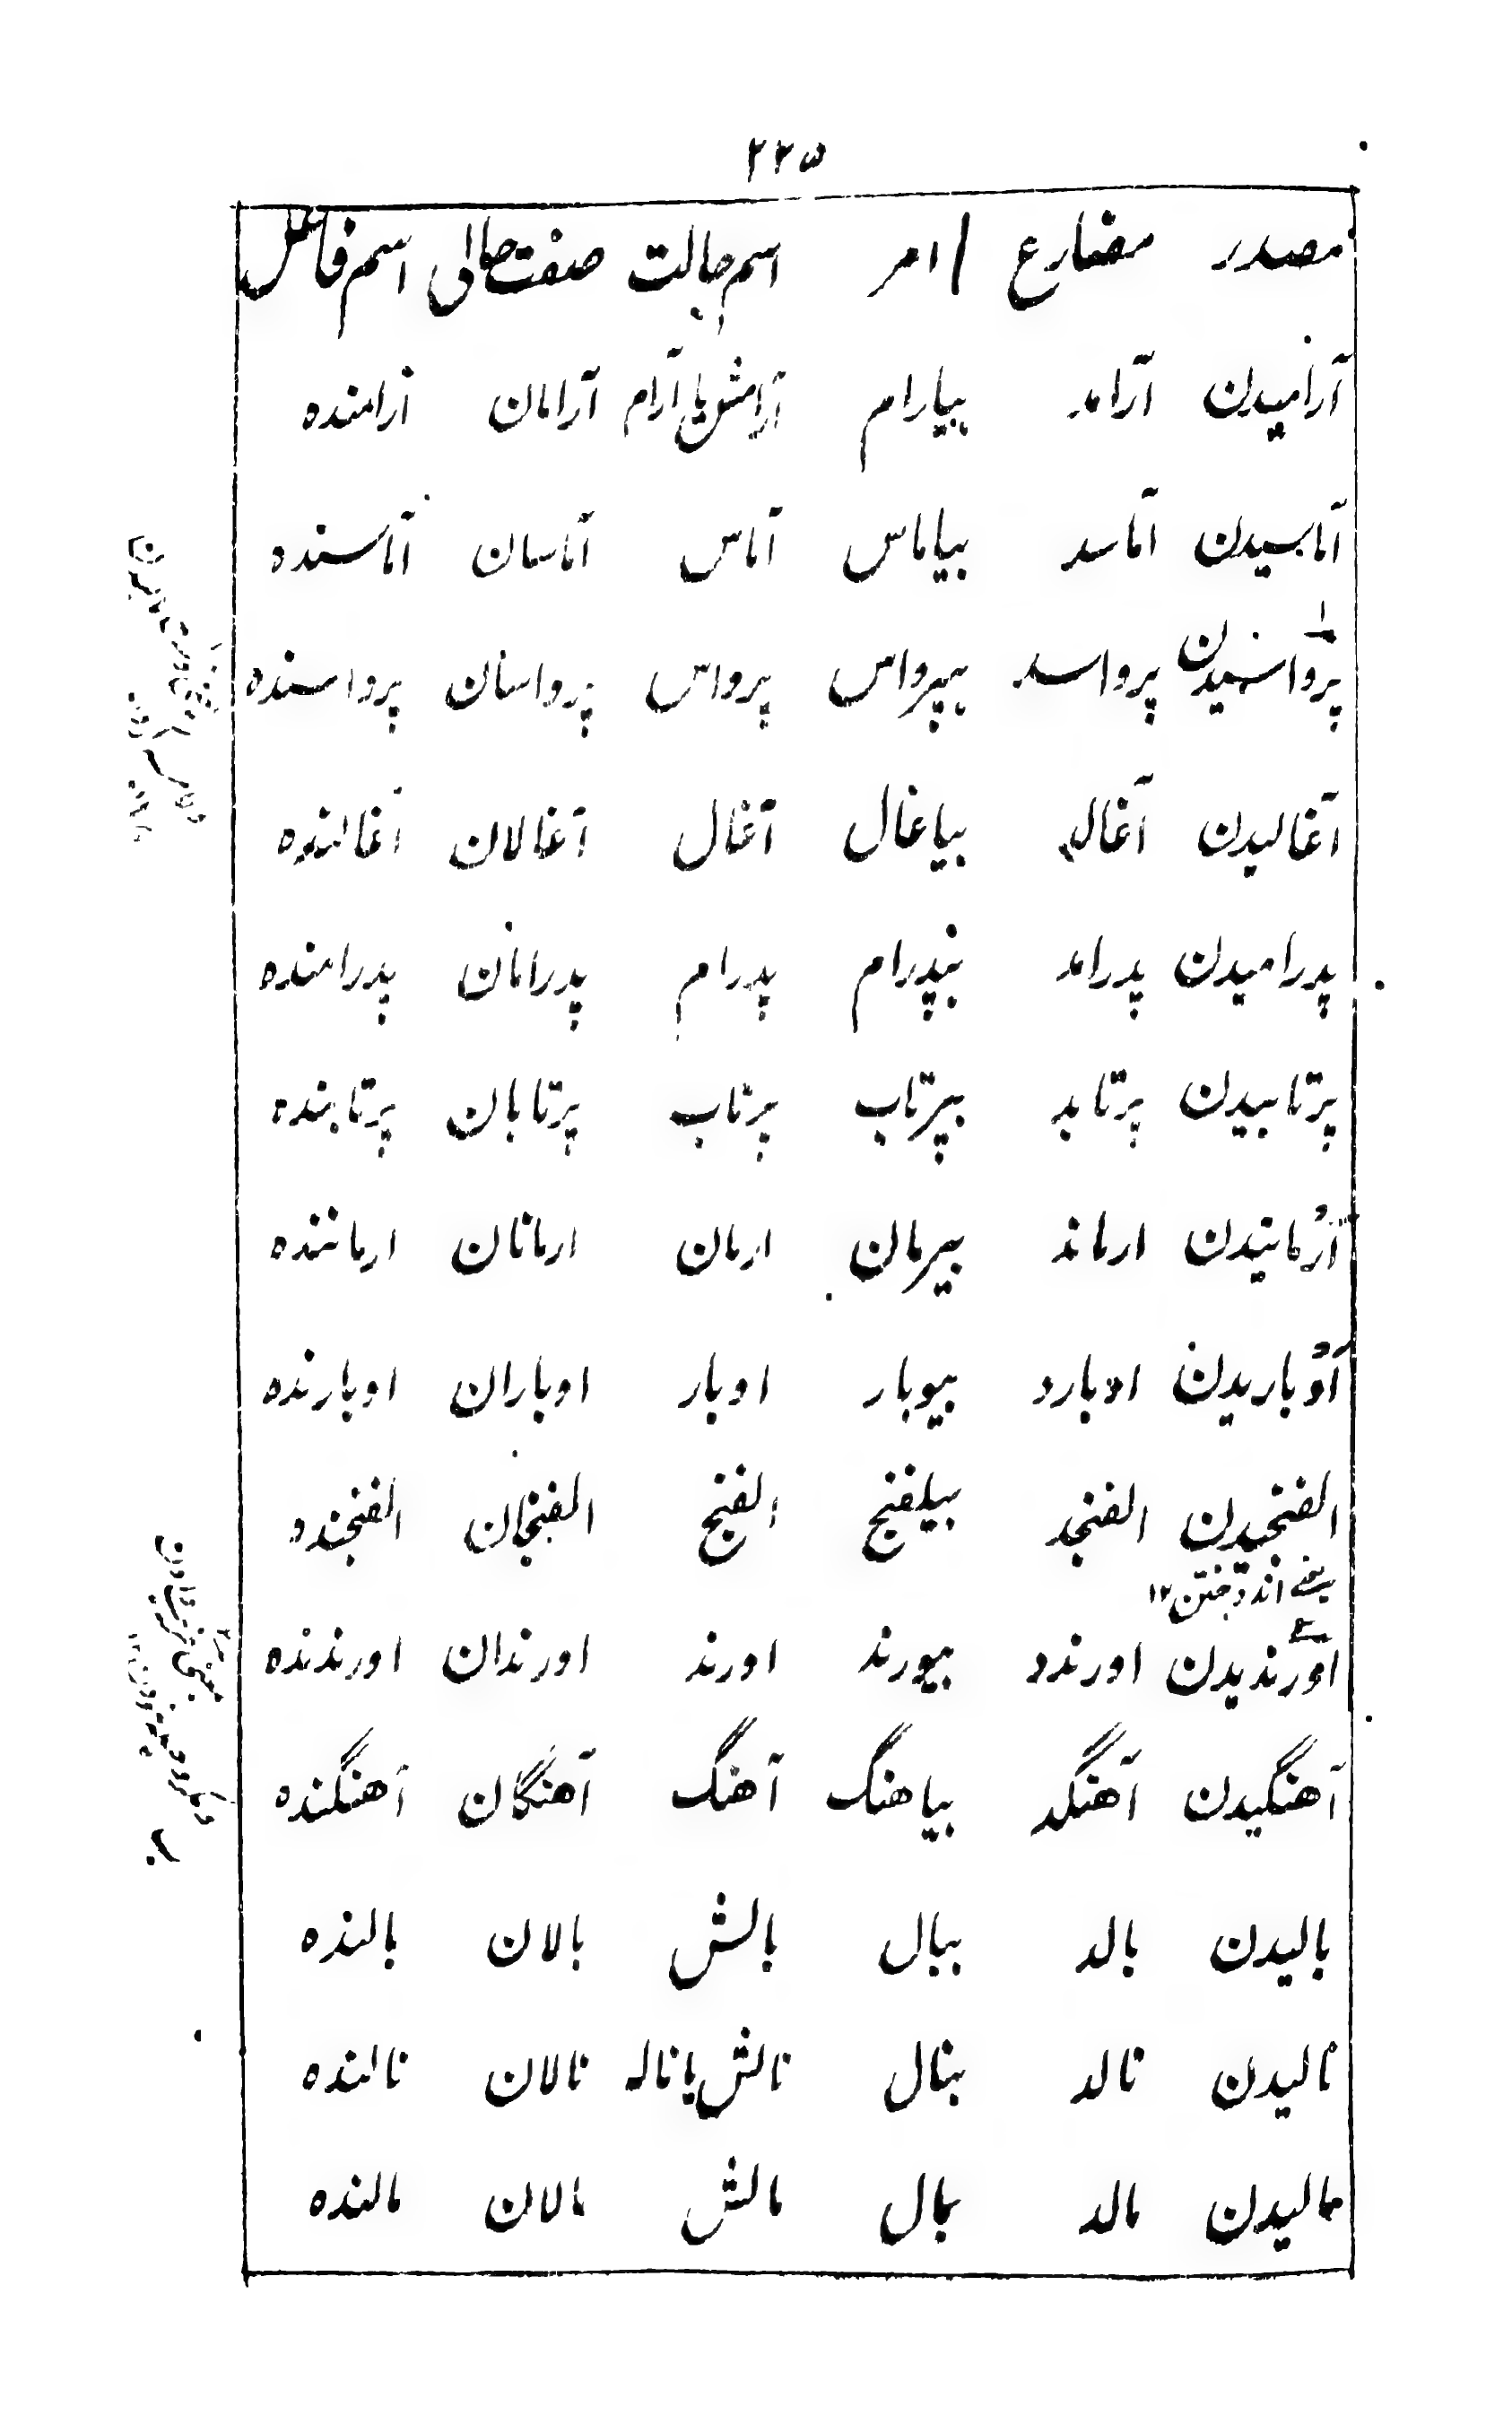 ۲۲۵
مصدر مضارع امر اسم حالت صفت حالی اسم فاعل
آرامیدن آرامد بیارام آرامش یا آرام آرامان آرامنده
آماسیدن آماسد بیاماس آماس آماسان آماسنده
پرواسیدن پرواسد بپرواس پرواس پرواسان پرواسنده
آغالیدن آغالد بیاغال آغال آغالان آغالنده
پدرامیدن پدرامد بپدرام پدرام پدرامان پدرامنده
پرتابیدن پرتابد بپرتاب پرتاب پرتابان پرتابنده
آرمانیدن ارماند بیرمان ارمان ارمانان ارماننده
اوباریدن اوبارد بیوبار اوبار اوباران اوبارنده
الفنجیدن الفنجد بیلفنج الفنج الفنجان الفنجنده
یعنے اندوختن ۱۲
اورندیدن اورندد بیورند اورند اورندان اورندنده
آهنگیدن آهنگد بیاهنگ آهنگ آهنگان آهنگنده
بالیدن بالد ببال بالش بالان بالنده
نالیدن نالد بنال نالش یا ناله نالان نالنده
مالیدن مالد بمال مالش مالان مالنده